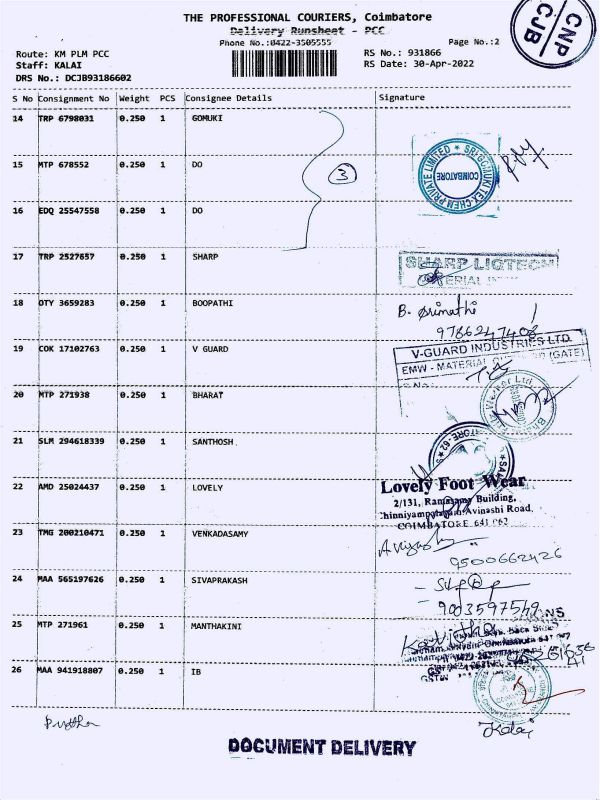 THE PROFESSIONAL COURIERS, Coimbatore
Delivery Runsheet - PCC
Phone No.:0422-3505555
Page No.:2
CNP
CJB
Route: KM PLM PCC
Staff: KALAI
DRS No.: DCJB93186602
RS No.: 931866
RS Date: 30-Apr-2022
S No Consignment No Weight PCS Consignee Details Signature
14 TRP 6798031 0.250 1 GOMUKI
15 MTP 678552 0.250 1 DO
3
SRI GOMUKI TEX CHEM PRIVATE LIMITED
COIMBATORE
16 EDQ 25547558 0.250 1 DO
17 TRP 2527657 0.250 1 SHARP
SHARP LIQTECH
18 OTY 3659283 0.250 1 BOOPATHI
B. Srimathi
9786247408
19 COK 17102763 0.250 1 V GUARD
V-GUARD INDUSTRIES LTD.
EMW - MATERIAL (GATE)
20 MTP 271938 0.250 1 BHARAT
21 SLM 294618339 0.250 1 SANTHOSH
22 AMD 25024437 0.250 1 LOVELY
Lovely Foot Wear
2/131, Ramasamy Building,
Chinniyampalayam, Avinashi Road,
COIMBATORE 641 062
23 TMG 200210471 0.250 1 VENKADASAMY
9500662426
24 MAA 565197626 0.250 1 SIVAPRAKASH
9003597549
25 MTP 271961 0.250 1 MANTHAKINI
Kavitha
26 MAA 941918807 0.250 1 IB
"Kalai"
DOCUMENT DELIVERY